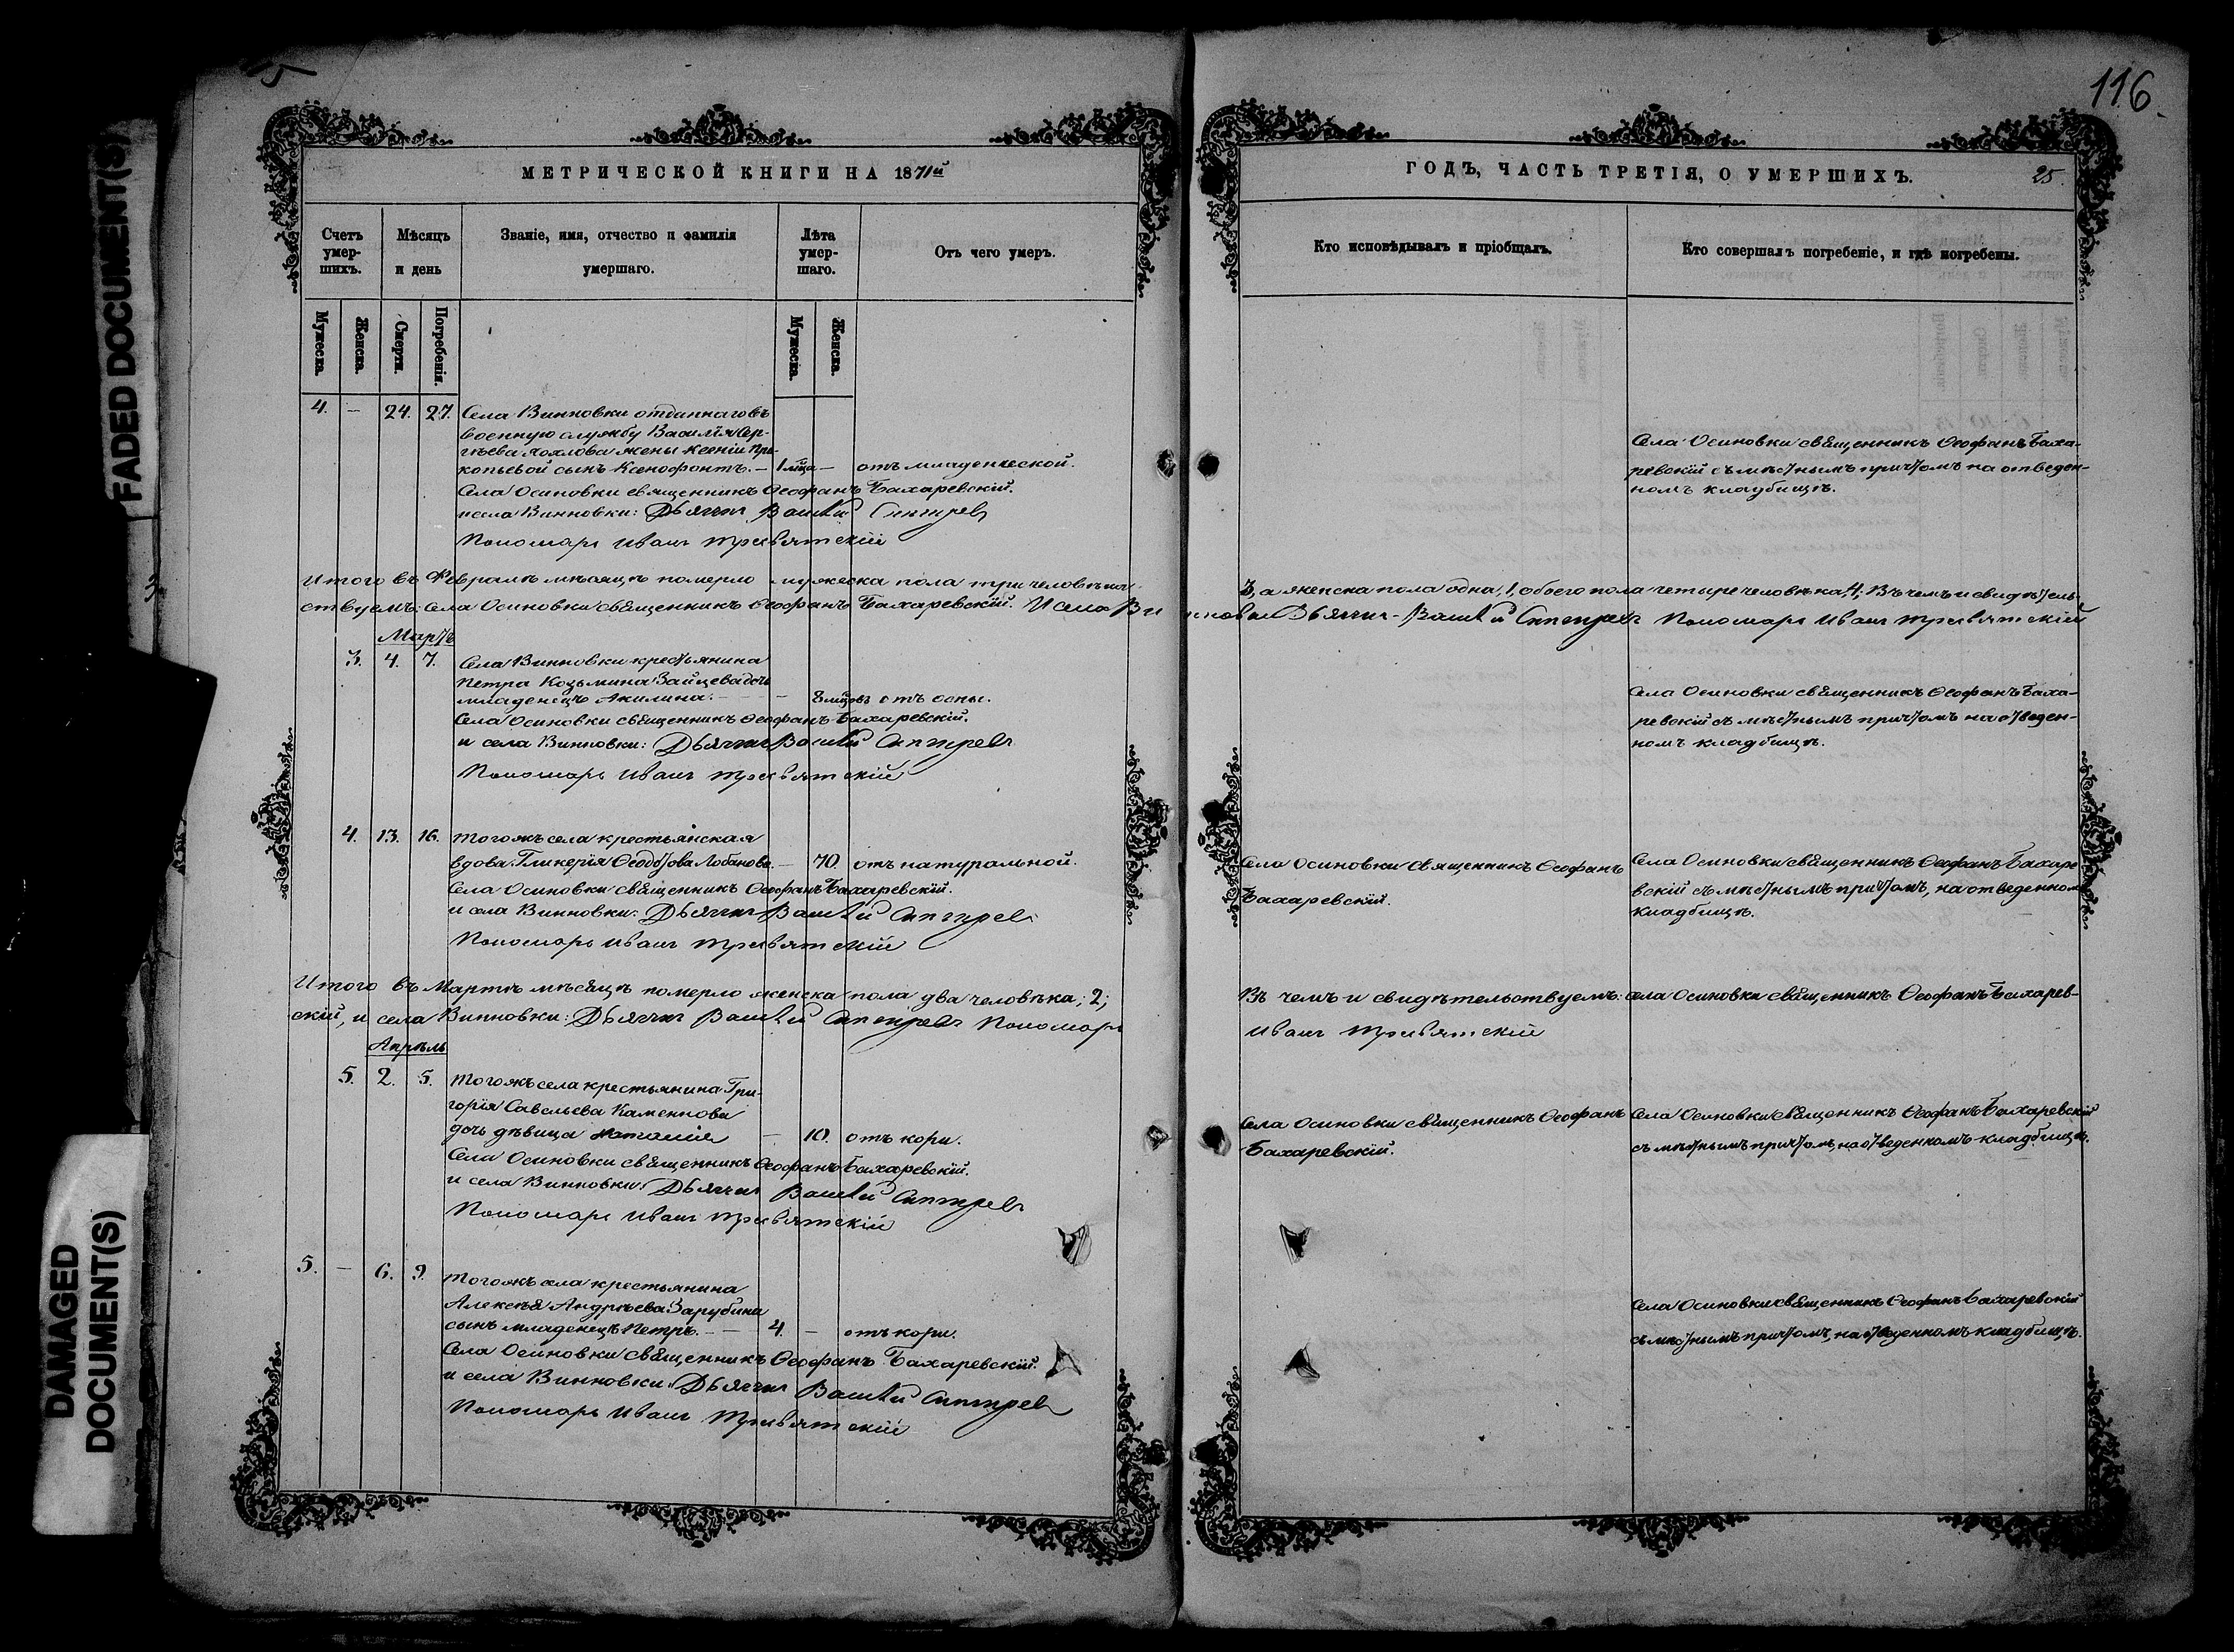 FADED DOCUMENT(S)
DAMAGED
DOCUMENT(S)
МЕТРИЧЕСКОЙ КНИГИ НА 1871й
Счетъ умер-шихъ.
Мѣсяцъ и день
Званіе, имя, отчество и фамилія умершаго.
Лѣта умер-шаго.
Отъ чего умеръ.
Мужеска.
Женска.
Смерти.
Погребенія.
Мужеска.
Женска.
4. — 24. 27. Села Винновки отданнаго въ
военную службу Василія Сер-
гѣева Хохлова жены Ксеніи Про-
копьевой сынъ Ксенофонтъ. — 1 м͠ца — отъ младенческой.
Села Осиновки священникъ Ѳеофанъ Бахаревскій.
и села Винновки: Дьячекъ
Пономарь Иванъ Тресвятскій
Итого въ Февралѣ мѣсяцѣ померло мужеска пола три человѣка
ствуемъ: Села Осиновки священникъ Ѳеофанъ Бахаревскій. И села Ви
Мартъ
3. 4. 7. Села Винновки крестьянина
Петра Козьмина Зайцева дочь
младенецъ Акилина. — — 8 мцовъ отъ оспы.
Села Осиновки священникъ Ѳеофанъ Бахаревскій.
и села Винновки: Дьячекъ
Пономарь Иванъ Тресвятскій
4. 13. 16. Тогожъ села крестьянская
вдова Гликерія Ѳеодотова Лобанова. — 70. отъ натуральной.
Села Осиновки священникъ Ѳеофанъ Бахаревскій.
и села Винновки: Дьячекъ
Пономарь Иванъ Тресвятскій
Итого въ Мартѣ мѣсяцѣ померло женска пола два человѣка; 2;
скій, и села Винновки: Дьячекъ Пономарь
Апрѣль
5. 2. 5. Тогожъ села крестьянина Гри-
горія Савельева Каменнова
дочь дѣвица Наталія — 10. отъ кори.
Села Осиновки священникъ Ѳеофанъ Бахаревскій.
и села Винновки: Дьячекъ
Пономарь Иванъ Тресвятскій
5. — 6. 9. Тогожъ села крестьянина
Алексѣя Андрѣева Зарубина
сынъ младенецъ Петръ. — — 4. — отъ кори.
Села Осиновки священникъ Ѳеофанъ Бахаревскій.
и села Винновки: Дьячекъ
Пономарь Иванъ Тресвятскій
116.
ГОДЪ, ЧАСТЬ ТРЕТІЯ, О УМЕРШИХЪ.
25.
Кто исповѣдывалъ и пріобщалъ.
Кто совершалъ погребеніе, и гдѣ погребены.
Села Осиновки священникъ Ѳеофанъ Баха-
ревскій съ мѣстнымъ причтомъ на отведен-
номъ кладбищѣ.
3, а женска пола одна, 1, обоего пола четыре человѣка, 4; Въ чемъ и свидѣтель-
нновки Дьячекъ Пономарь Иванъ Тресвятскій
Села Осиновки священникъ Ѳеофанъ Баха-
ревскій съ мѣстнымъ причтомъ на отведен-
номъ кладбищѣ.
Села Осиновки священникъ Ѳеофанъ
Бахаревскій.
Села Осиновки священникъ Ѳеофанъ Бахаре
вскій съ мѣстнымъ причтомъ, на отведенномъ
кладбищѣ.
Въ чемъ и свидѣтельствуемъ: села Осиновки священникъ Ѳеофанъ Бахарев-
Иванъ Тресвятскій
Села Осиновки священникъ Ѳеофанъ
Бахаревскій.
Села Осиновки священникъ Ѳеофанъ Бахаревскій
съ мѣстнымъ причтомъ, на отведенномъ кладбищѣ.
Села Осиновки священникъ Ѳеофанъ Бахаревскій
съ мѣстнымъ причтомъ, на отведенномъ кладбищѣ.